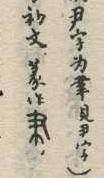 尹字为聿見尹字）
初文，篆作